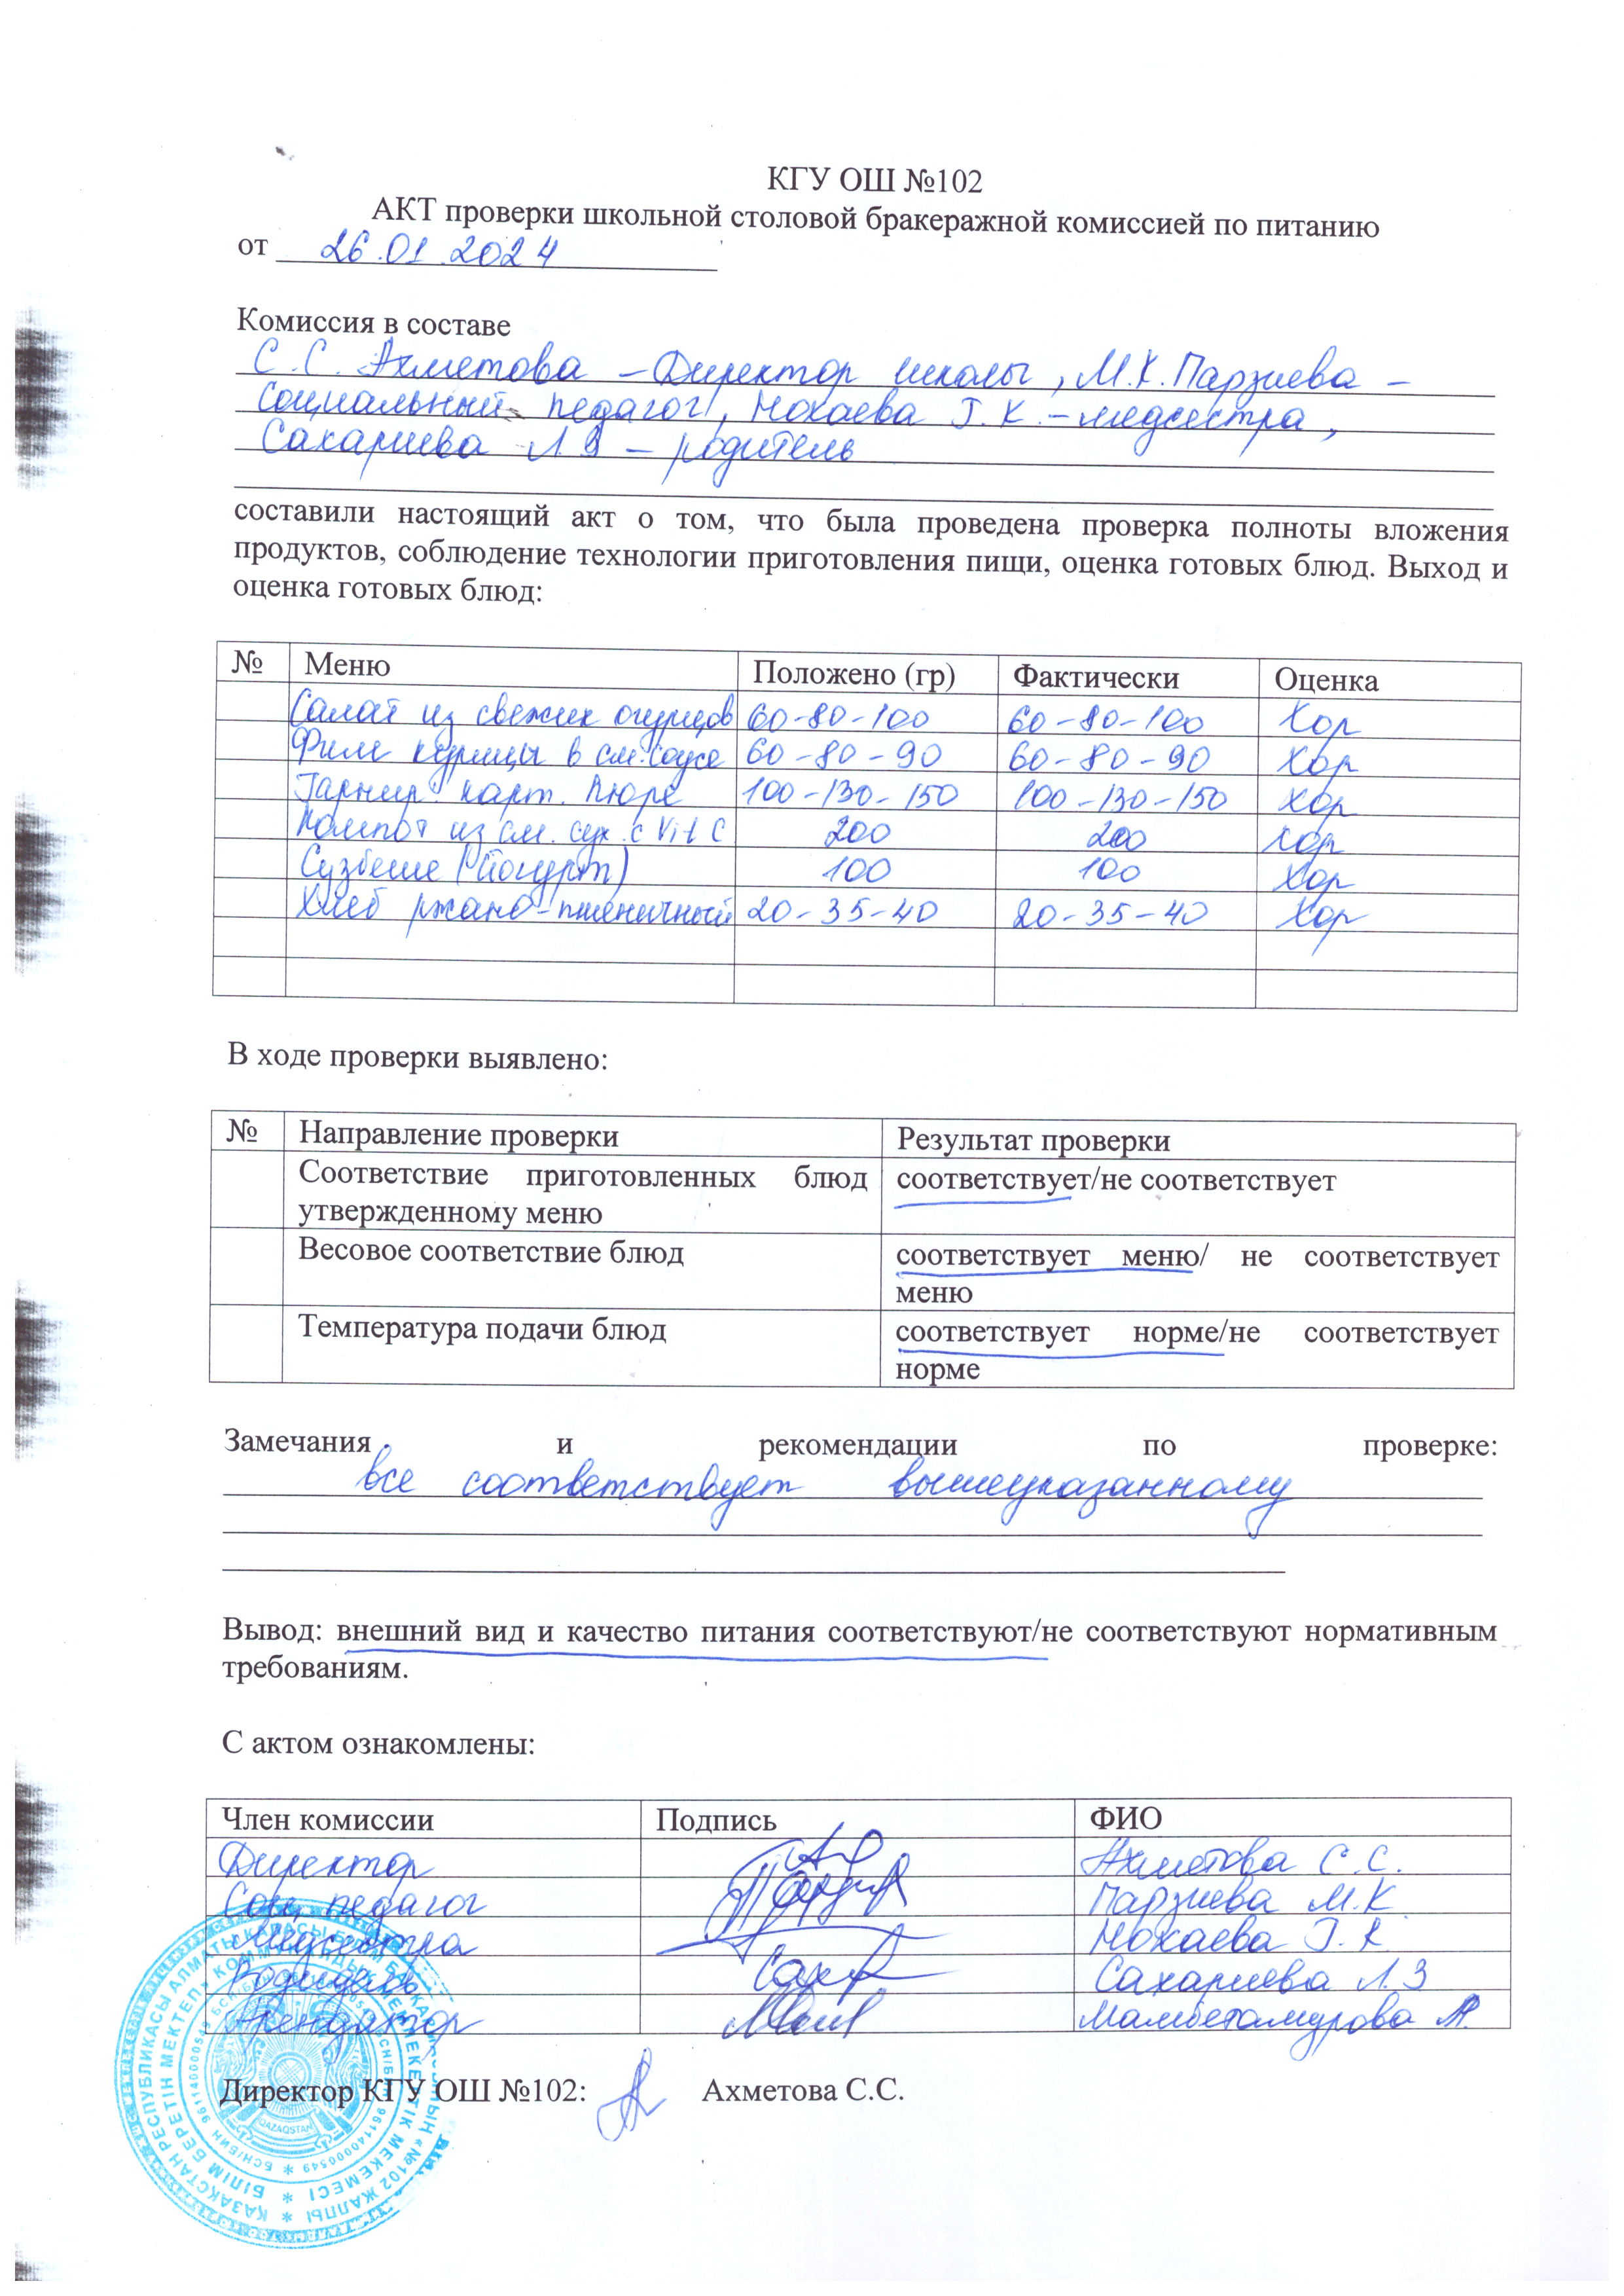 КГУ ОШ №102
АКТ проверки школьной столовой бракеражной комиссией по питанию
от 26.01.2024
Комиссия в составе
С.С. Ахметова – Директор школы, М.К. Парзиева –
социальный педагог, Нохаева Г.К. – медсестра,
Сахариева Л.З – родитель
составили настоящий акт о том, что была проведена проверка полноты вложения
продуктов, соблюдение технологии приготовления пищи, оценка готовых блюд. Выход и
оценка готовых блюд:
№ Меню Положено (гр) Фактически Оценка
Салат из свежих огурцов 60-80-100 60-80-100 Хор
Филе курицы в см. соусе 60-80-90 60-80-90 Хор
Гарнир: карт. пюре 100-130-150 100-130-150 Хор
Компот из см. сух. с Vit C 200 200 Хор
Сузбеше (йогурт) 100 100 Хор
Хлеб ржано-пшеничный 20-35-40 20-35-40 Хор
В ходе проверки выявлено:
№ Направление проверки Результат проверки
Соответствие приготовленных блюд соответствует/не соответствует
утвержденному меню
Весовое соответствие блюд соответствует меню/ не соответствует
меню
Температура подачи блюд соответствует норме/не соответствует
норме
Замечания и рекомендации по проверке:
все соответствует вышеуказанному
Вывод: внешний вид и качество питания соответствуют/не соответствуют нормативным
требованиям.
С актом ознакомлены:
Член комиссии Подпись ФИО
Директор Ахметова С.С.
Соц. педагог Парзиева М.К
Медсестра Нохаева Г.К
Родитель Сахариева Л.З
Арендатор Мамбетамурова А.
Директор КГУ ОШ №102: Ахметова С.С.
QAZAQSTAN